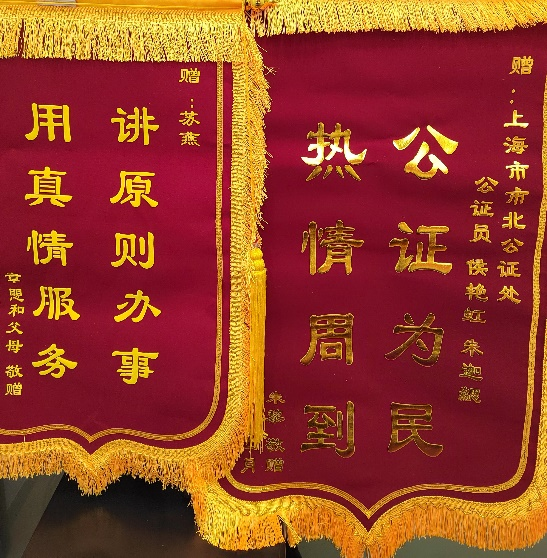 赠：苏燕
诽原则办事
用真情服务
和父母 敬赠
赠：上海市市北公证处
公证员 侯艳虹 朱迦
公证为民
热情周到
敬赠
月